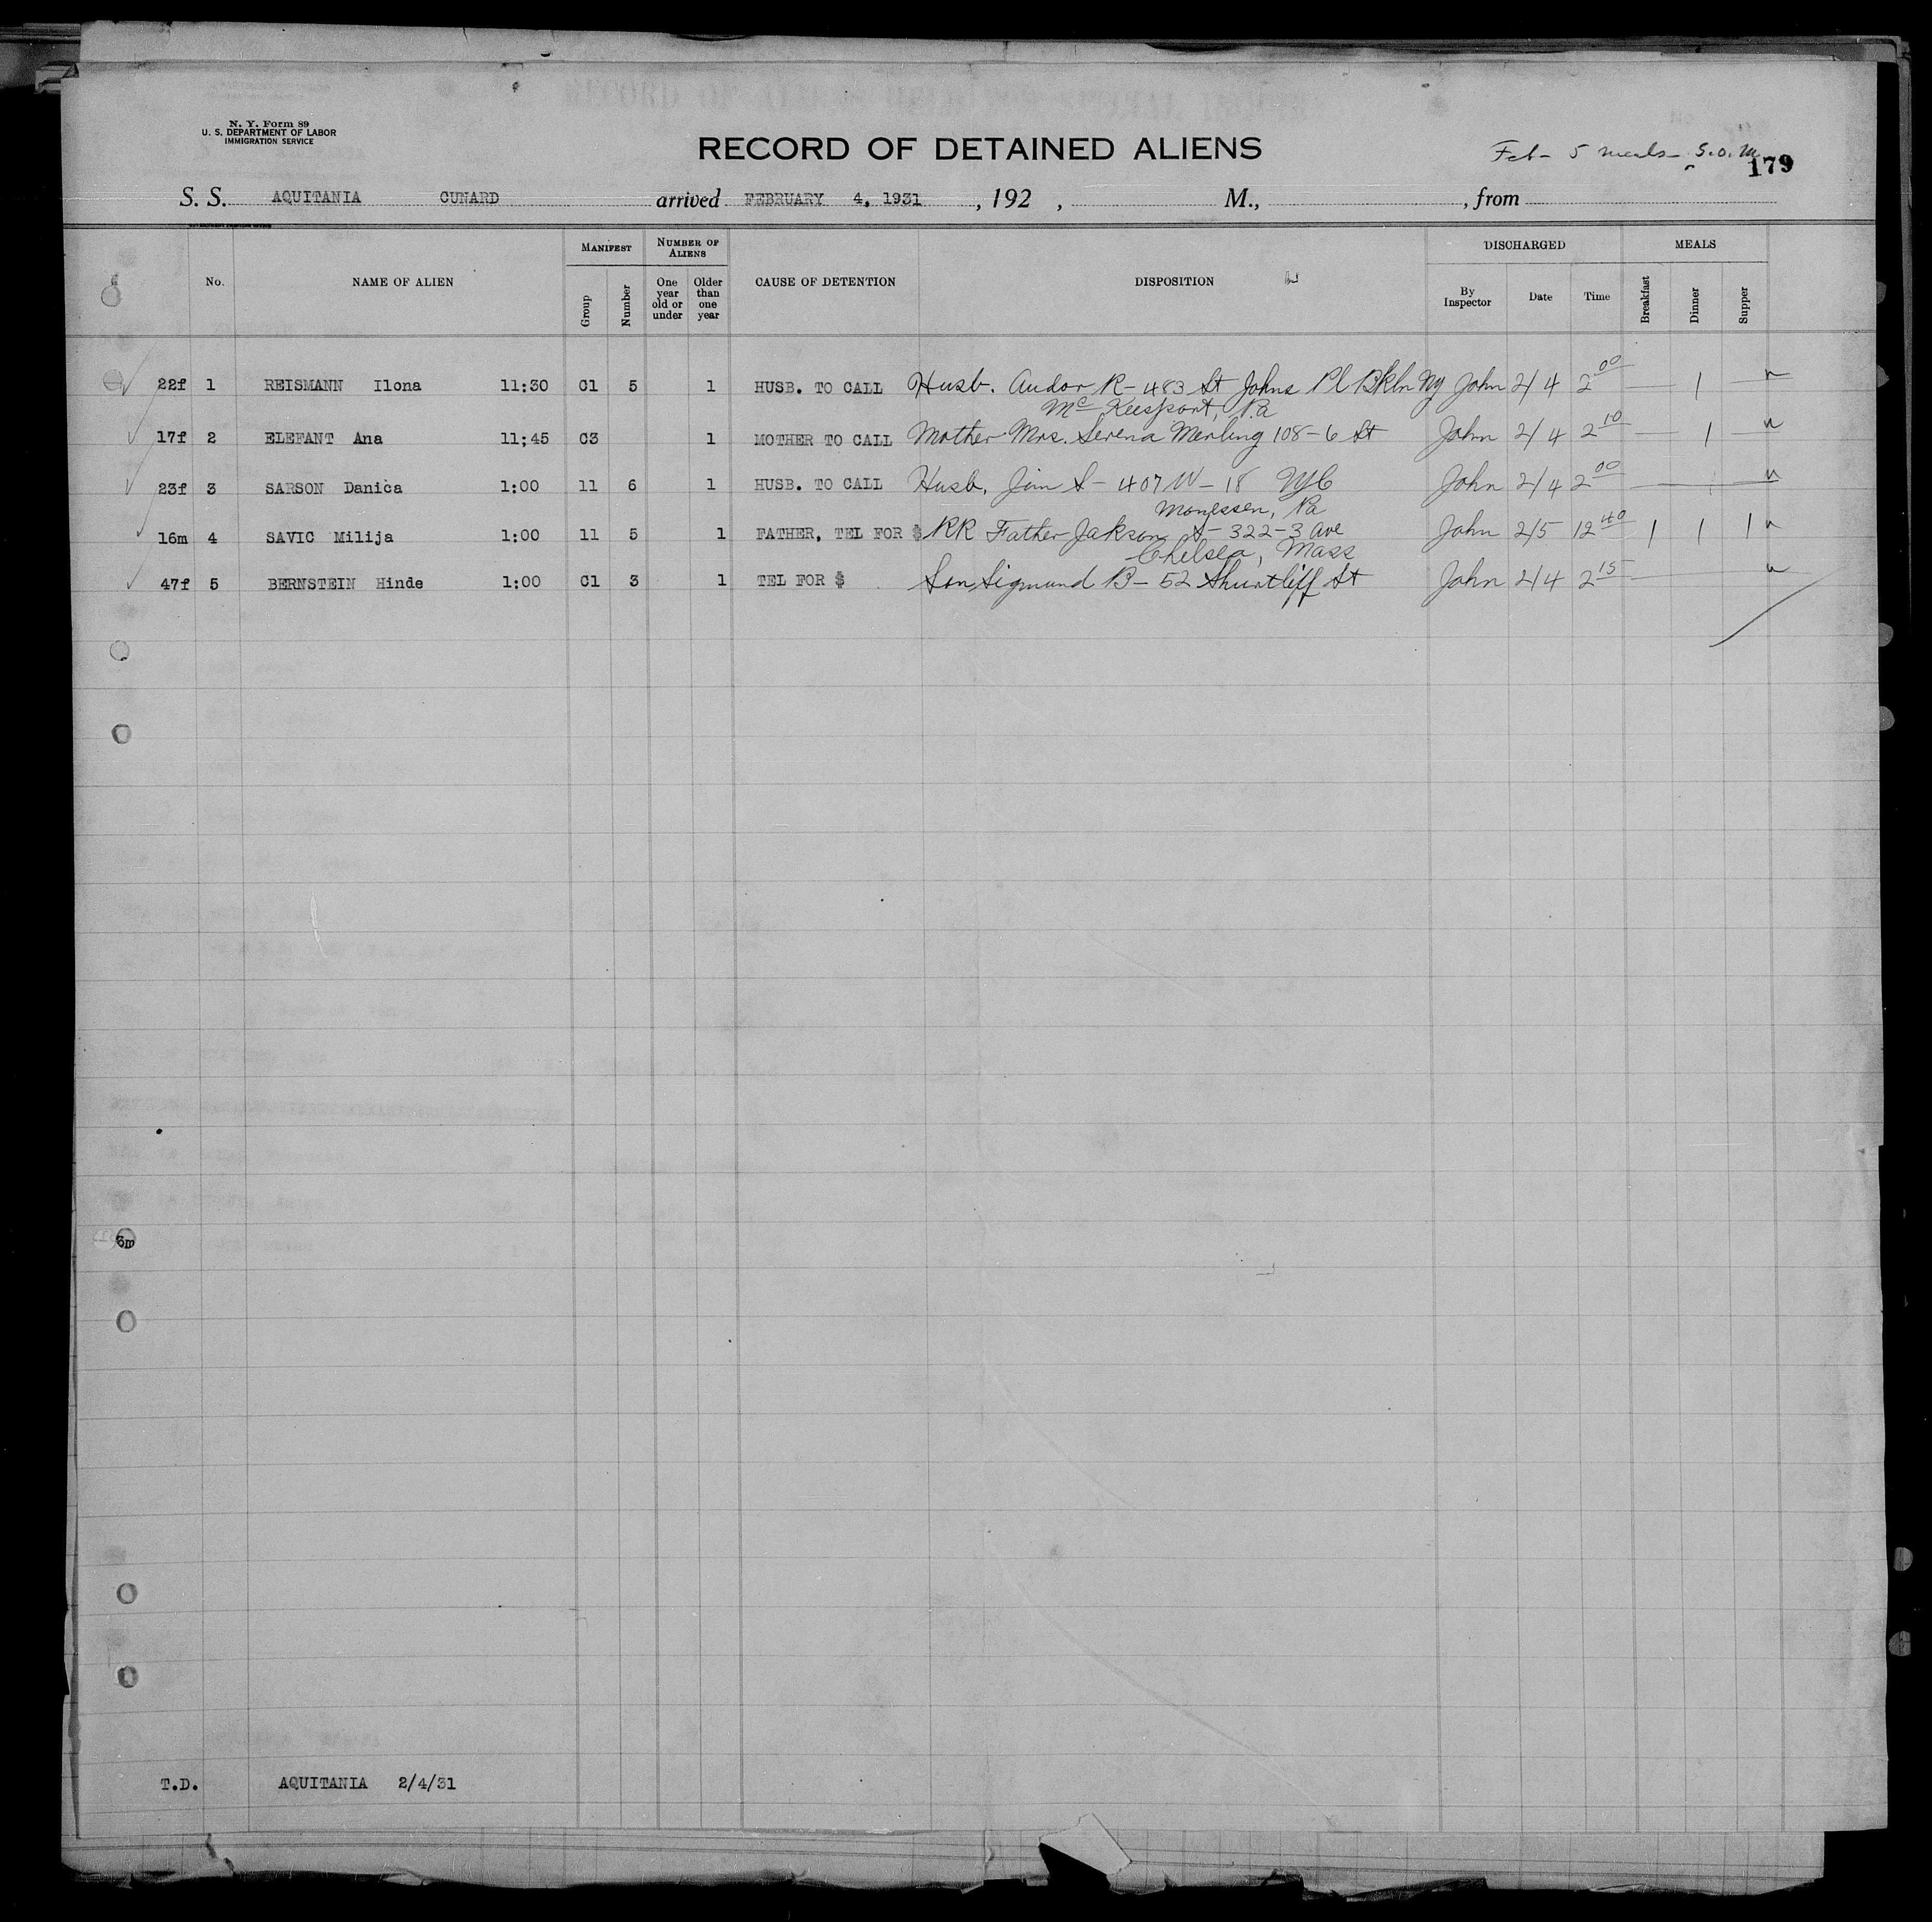 N. Y. Form 89
U. S. DEPARTMENT OF LABOR
IMMIGRATION SERVICE
RECORD OF DETAINED ALIENS
Feb - 5 meals - S.O.M.
179
S. S. AQUITANIA CUNARD arrived FEBRUARY 4, 1931 , 192 , M., , from
No. NAME OF ALIEN MANIFEST Group Number NUMBER OF ALIENS One year old or under Older than one year CAUSE OF DETENTION DISPOSITION DISCHARGED By Inspector Date Time MEALS Breakfast Dinner Supper
22f 1 REISMANN Ilona 11:30 C1 5 1 HUSB. TO CALL Husb. Andor R - 483 St Johns Pl Bkln NY John 2/4 2 00 — 1 —
McKeesport, Pa
17f 2 ELEFANT Ana 11;45 C3 1 MOTHER TO CALL Mother Mrs. Serena Merling 108-6 St John 2/4 2 10 — 1 —
23f 3 SARSON Danica 1:00 11 6 1 HUSB. TO CALL Husb. Jim S - 407 W - 18 NYC John 2/4 2 00
Monessen, Pa
16m 4 SAVIC Milija 1:00 11 5 1 FATHER, TEL FOR $ RR Father Jakson S - 322-3 Ave John 2/5 12 40 1 1 1
Chelsea, Mass
47f 5 BERNSTEIN Hinde 1:00 C1 3 1 TEL FOR $ Son Sigmund B - 52 Shurtliff St John 2/4 2 15
6m
T.D. AQUITANIA 2/4/31